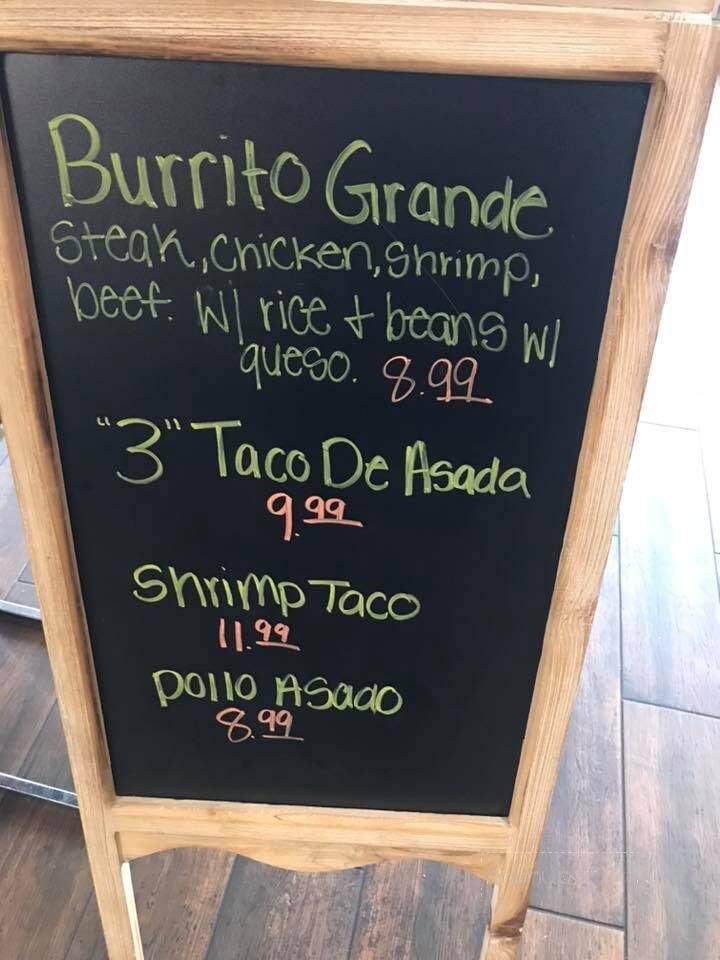 Burrito Grande
Steak, chicken, shrimp,
beef. W/ rice + beans w/
queso. 8.99
"3" Taco De Asada
9.99
Shrimp Taco
11.99
pollo Asado
8.99